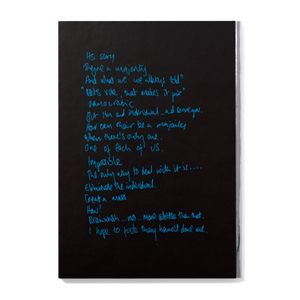 Its scary
Being a majority
And what we we always told
"Let's vote, that makes it fair"
Democratic
But I'm an individual and so are you
How can there be a majority
When there's only one
One of each of us.
Impossible
The only way to deal with it is....
Eliminate the individual.
Create a mass
How?
Brainwash...no...more subtle than that.
I hope to fuck they haven't done me.